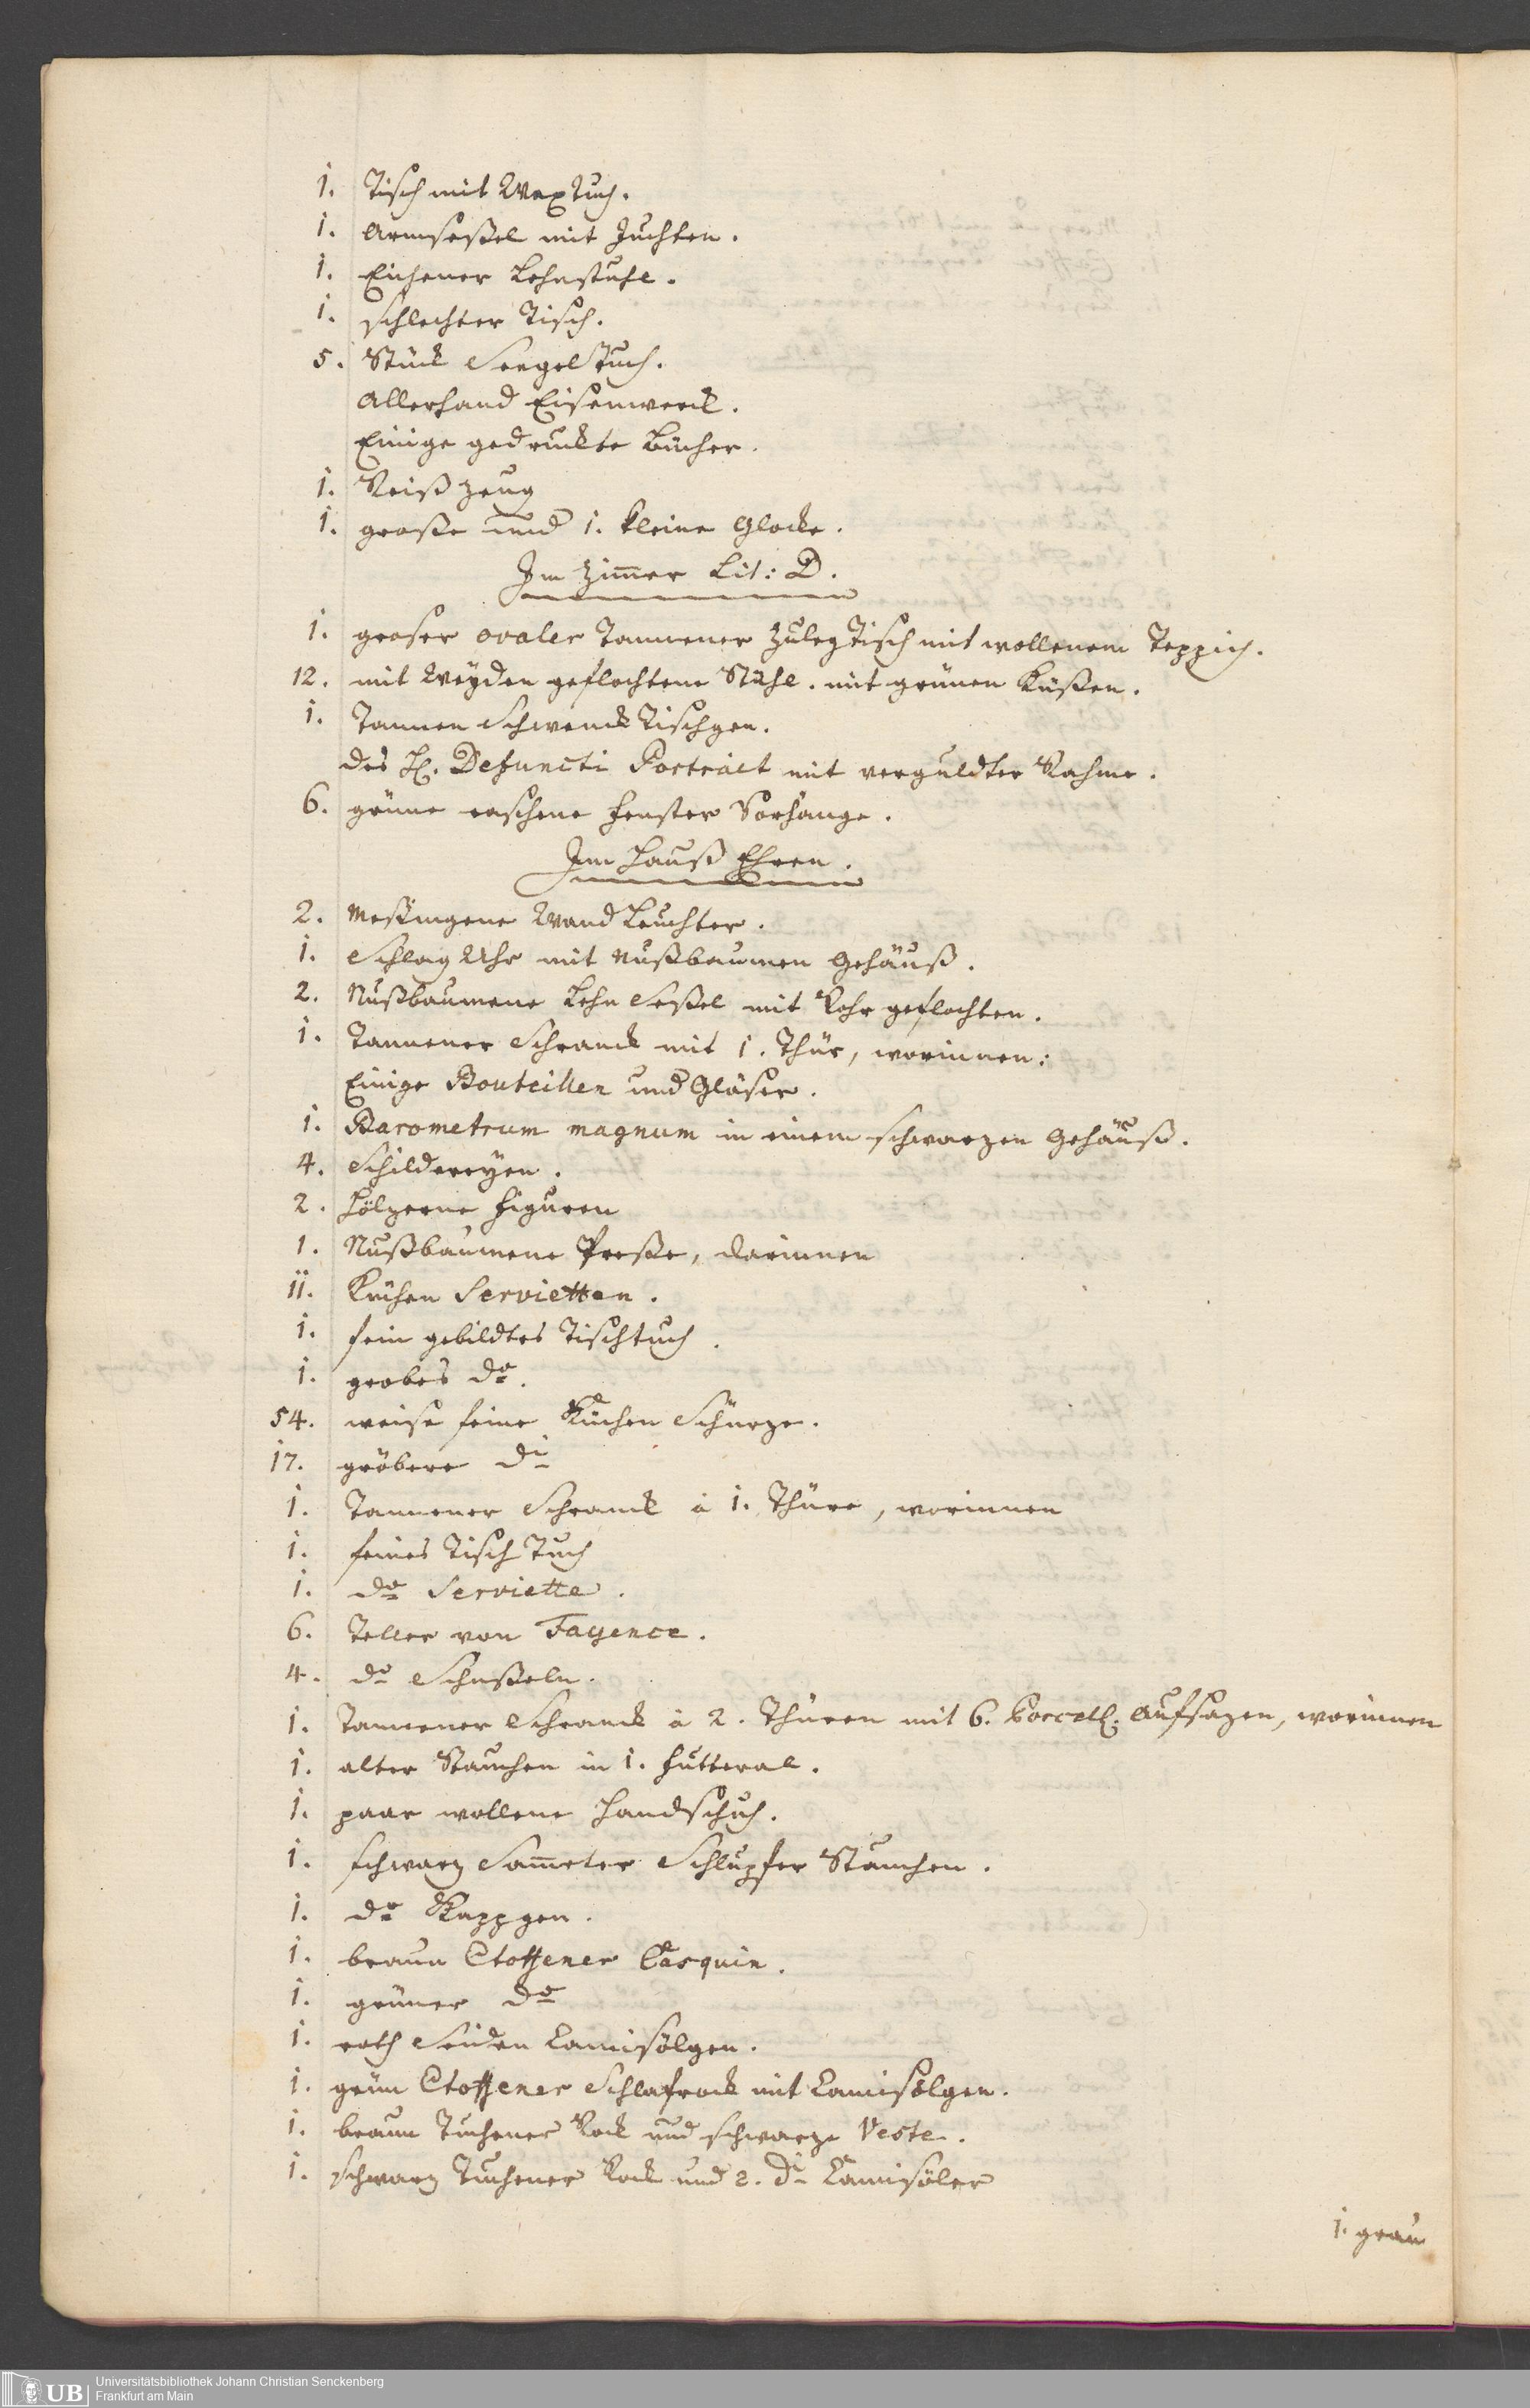 1. Tisch mit Wax Tuch.
1. Armseßel mit Juchten.
1. Eichener Lehnstuhl.
1. schlechter Tisch.
5. Stück Seegel Tuch.
Allerhand Eisenwerck.
Einige gedruckte Bücher.
1. Reiß Zeug
1. große und 1. kleine Glocke.
Im Zim̅er Lit: D.
1. groser ovaler Tannener Zuleg Tisch mit wollenem Teppich.
12. mit Weyden geflochtene Stühl. mit grünen Küßen.
1. Tannen Schwenck Tischgen.
des H. Defuncti Portrait mit verguldter Rahme.
6. grüne raschene Fenster Vorhänge.
Im Hauß Ehren.
2. Meßingene Wand Leuchter.
1. Schlag Uhr mit Nußbaumen Gehäuß.
2. Nußbaumene Lehn Seßel mit Rohr geflochten.
1. Tannener Schranck mit 1. Thür, worinnen:
Einige Bouteillen und Gläser.
1. Barometrum magnum in einem schwarzen Gehäuß.
4. Schildereyen.
2. Hölzerne Figuren
1. Nußbaumene Preße, darinnen
11. Küchen Servietten.
1. fein gebildtes Tischtuch.
1. grobes do.
54. weise feine Küchen Schürze.
17. gröbere di
1. Tannener Schranck à 1. Thüre, worinnen
1. feines Tisch Tuch
1. do Serviette.
6. Teller von Fayence.
4. do Schüßeln.
1. Tannener Schranck à 2. Thüren mit 6. Porcell. Aufsäzen, worinnen
1. alter Stauchen in 1. Futteral.
1. paar wollene Handschuh.
1. schwarz Sam̅eter Schlupfer Stauchen.
1. do Kappgen.
1. braun Etoffener Casquin.
1. grüner do
1. roth Seiden Camisölgen.
1. grün Etoffener Schlafrock mit Camisölgen.
1. braun Tuchener Rock und schwarze Veste.
1. schwarz Tuchener Rock und 2. di Camisöler
1. grau
UB Universitätsbibliothek Johann Christian Senckenberg
Frankfurt am Main